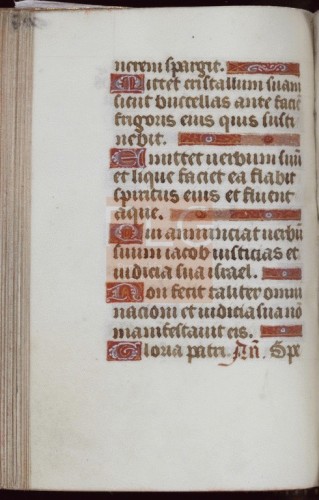 nerem spargit.
Mittet cristallum suam
sicut buccellas ante facie
frigoris eius quis susti
nebit.
Emittet uerbum suũ
et lique faciet ea flabit
spiritus eius et fluent
aque.
Qui annunciat uerbũ
suum iacob iusticias et
iudicia sua israel.
Non fecit taliter omni
nacioni et iudicia sua nõ
manifestauit eis.
Gloria patri. Añ. Spe